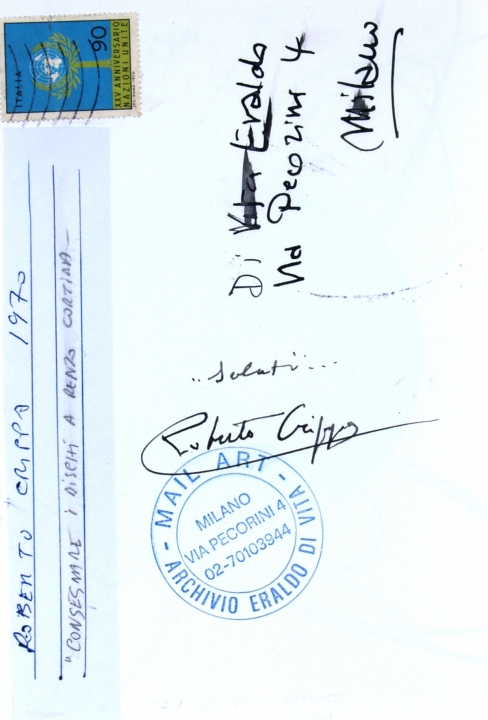 ITALIA
90
XXV ANNIVERSARIO
NAZIONI UNITE
ROBERTO CRIPPA 1970
"CONSEGNARE I DISCHI A RENZO CORTINA —
Di Vita Eraldo
Via Pecorini 4
Milano
"Saluti"...
Roberto Crippa
- MAIL ART -
ARCHIVIO ERALDO DI VITA
MILANO
VIA PECORINI 4
02-70103944